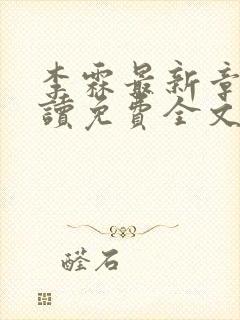 李霖最新章
讀免費全文
醛石